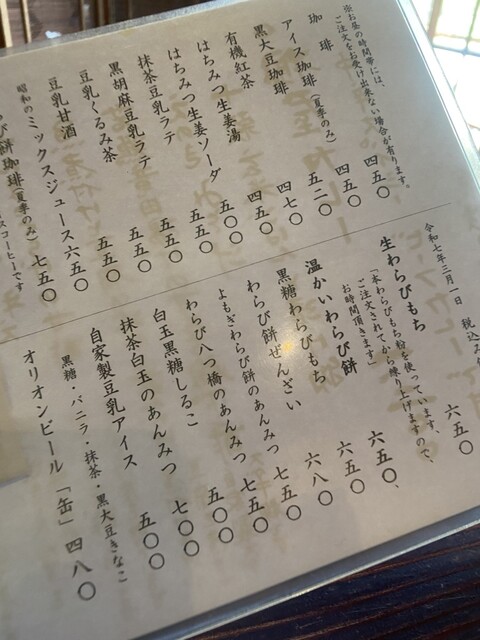 ※お昼の時間帯には、
ご注文をお受け出来ない場合が有ります。
珈琲 四五〇
アイス珈琲(夏季のみ) 四五〇
黒大豆珈琲 五二〇
有機紅茶 四七〇
はちみつ生姜湯 四五〇
はちみつ生姜ソーダ 五〇〇
抹茶豆乳ラテ 五五〇
黒胡麻豆乳ラテ 五五〇
豆乳くるみ茶 五五〇
豆乳甘酒 五五〇
昭和のミックスジュース 六五〇
び餅珈琲(夏季のみ) 七五〇
スコーヒーです
令和七年三月一日 税込み
生わらびもち 六五〇
「本わらびもち粉を使っています、
ご注文されてから練り上げますので、
お時間頂きます」
温かいわらび餅 六五〇、
黒糖わらびもち 六五〇
わらび餅ぜんざい 六八〇
よもぎわらび餅のあんみつ 七五〇
わらび八つ橋のあんみつ 七五〇
白玉黒糖しるこ 五〇〇
抹茶白玉のあんみつ 七〇〇
自家製豆乳アイス 五〇〇
黒糖・バニラ・抹茶・黒大豆きなこ
オリオンビール「缶」 四八〇